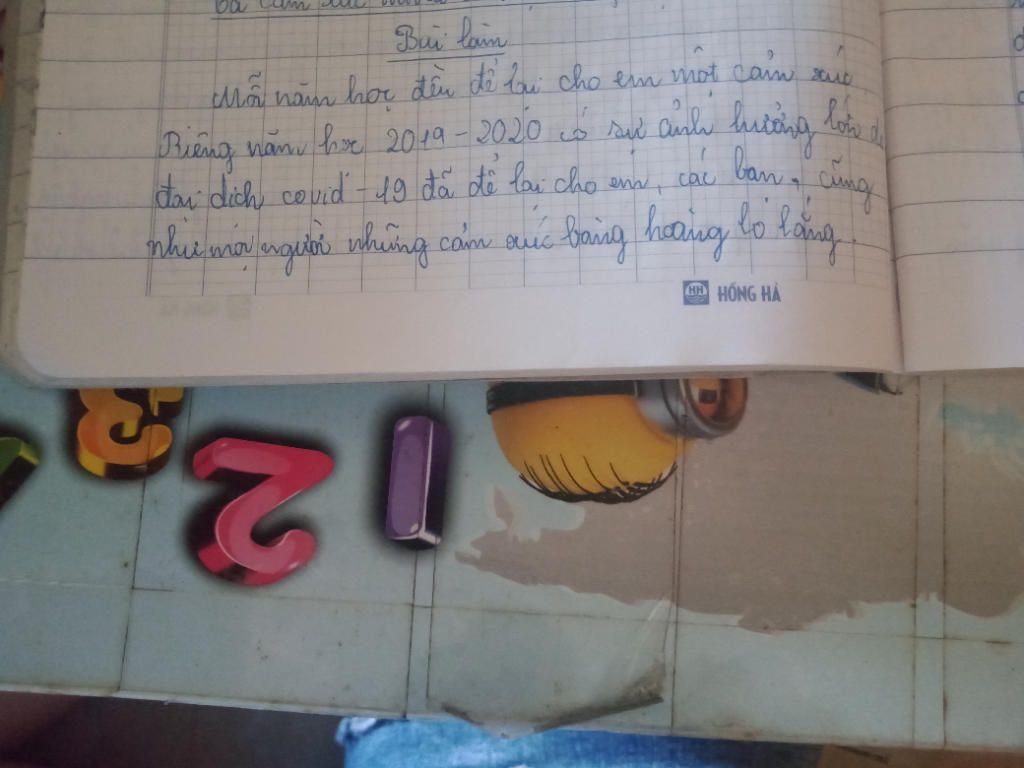 Bài làm
Mỗi năm học đều để lại cho em một cảm xúc
Riêng năm học 2019-2020 có sự ảnh hưởng lớn
đại dịch covid-19 đã để lại cho em, các bạn, cũng
như mọi người những cảm xúc bàng hoàng lo lắng.
HH HỒNG HÀ
3
2
1